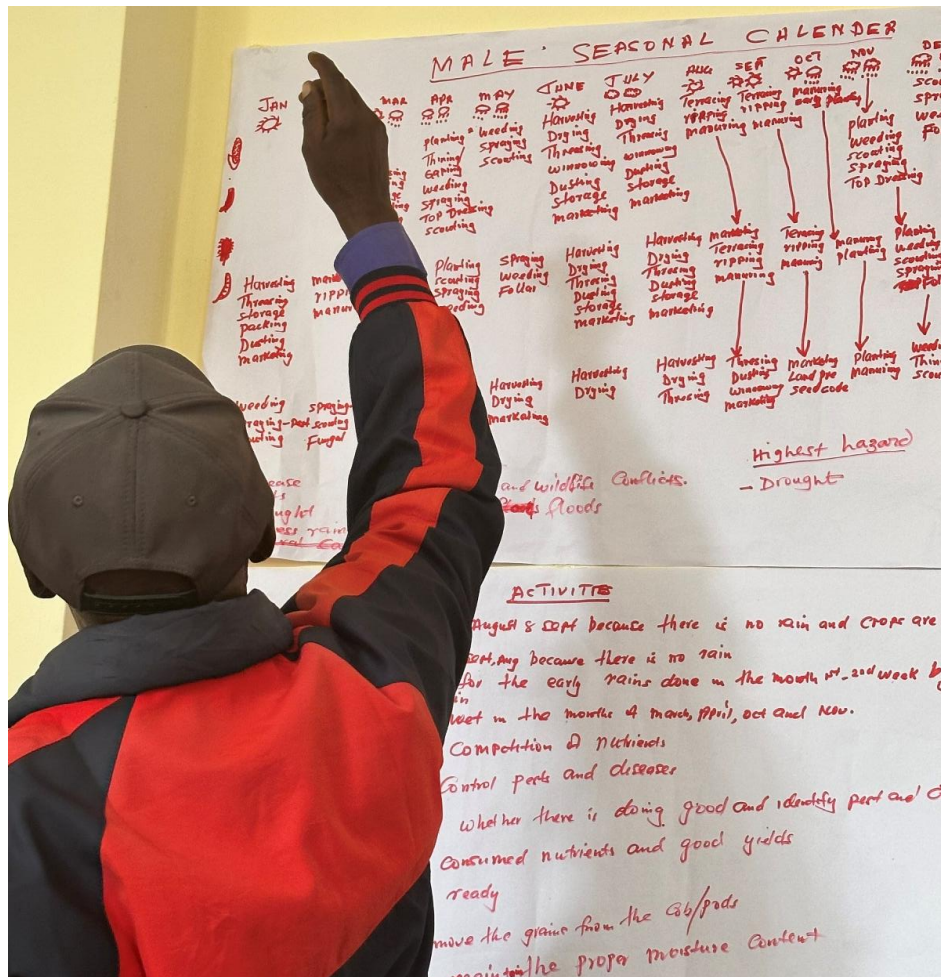 MALE SEASONAL CHLENDER
JAN
MAR
APR
MAY
JUNE
JULY
AUG
SEPT
OCT
NOV
DE
planting
Thining
Gaping
weeding
spraying
TOP Dressing
scouting
weeding
spraying
scouting
Harvesting
Drying
Thresing
winnowing
Dusting
storage
marketing
Harvesting
Drying
Thresing
winnowing
Dusting
storage
marketing
Terracing
ripping
manuring
Terracing
ripping
manuring
manuring
early planting
planting
weeding
scouting
spraying
TOP Dressing
Harvesting
Thresing
storage
packing
Dusting
marketing
Planting
scouting
spraying
spraying
weeding
Foliar
Harvesting
Drying
Thresing
Dusting
storage
marketing
Harvesting
Drying
Thresing
Dusting
storage
marketing
marketing
Terracing
ripping
manuring
Terracing
ripping
manuring
manuring
planting
Planting
weeding
scouting
spraying
weeding
spraying
Fungal
Harvesting
Drying
marketing
Harvesting
Drying
Harvesting
Drying
Thresing
Thresing
Dusting
winnowing
marketing
marketing
Land pre
Planting
manuring
and wildlife conflicts.
floods
Highest hazard
- Drought
ACTIVITIS
August & sept because there is no rain and crops are
sept, Aug because there is no rain
for the early rains done in the month 1st-2nd week
wet in the months of march, April, oct and Nov.
Competition of nutrients
Control pests and diseases
whether there is doing good and identify pest and
consumed nutrients and good yields
ready
move the grains from the cob/pods
the proper moisture content